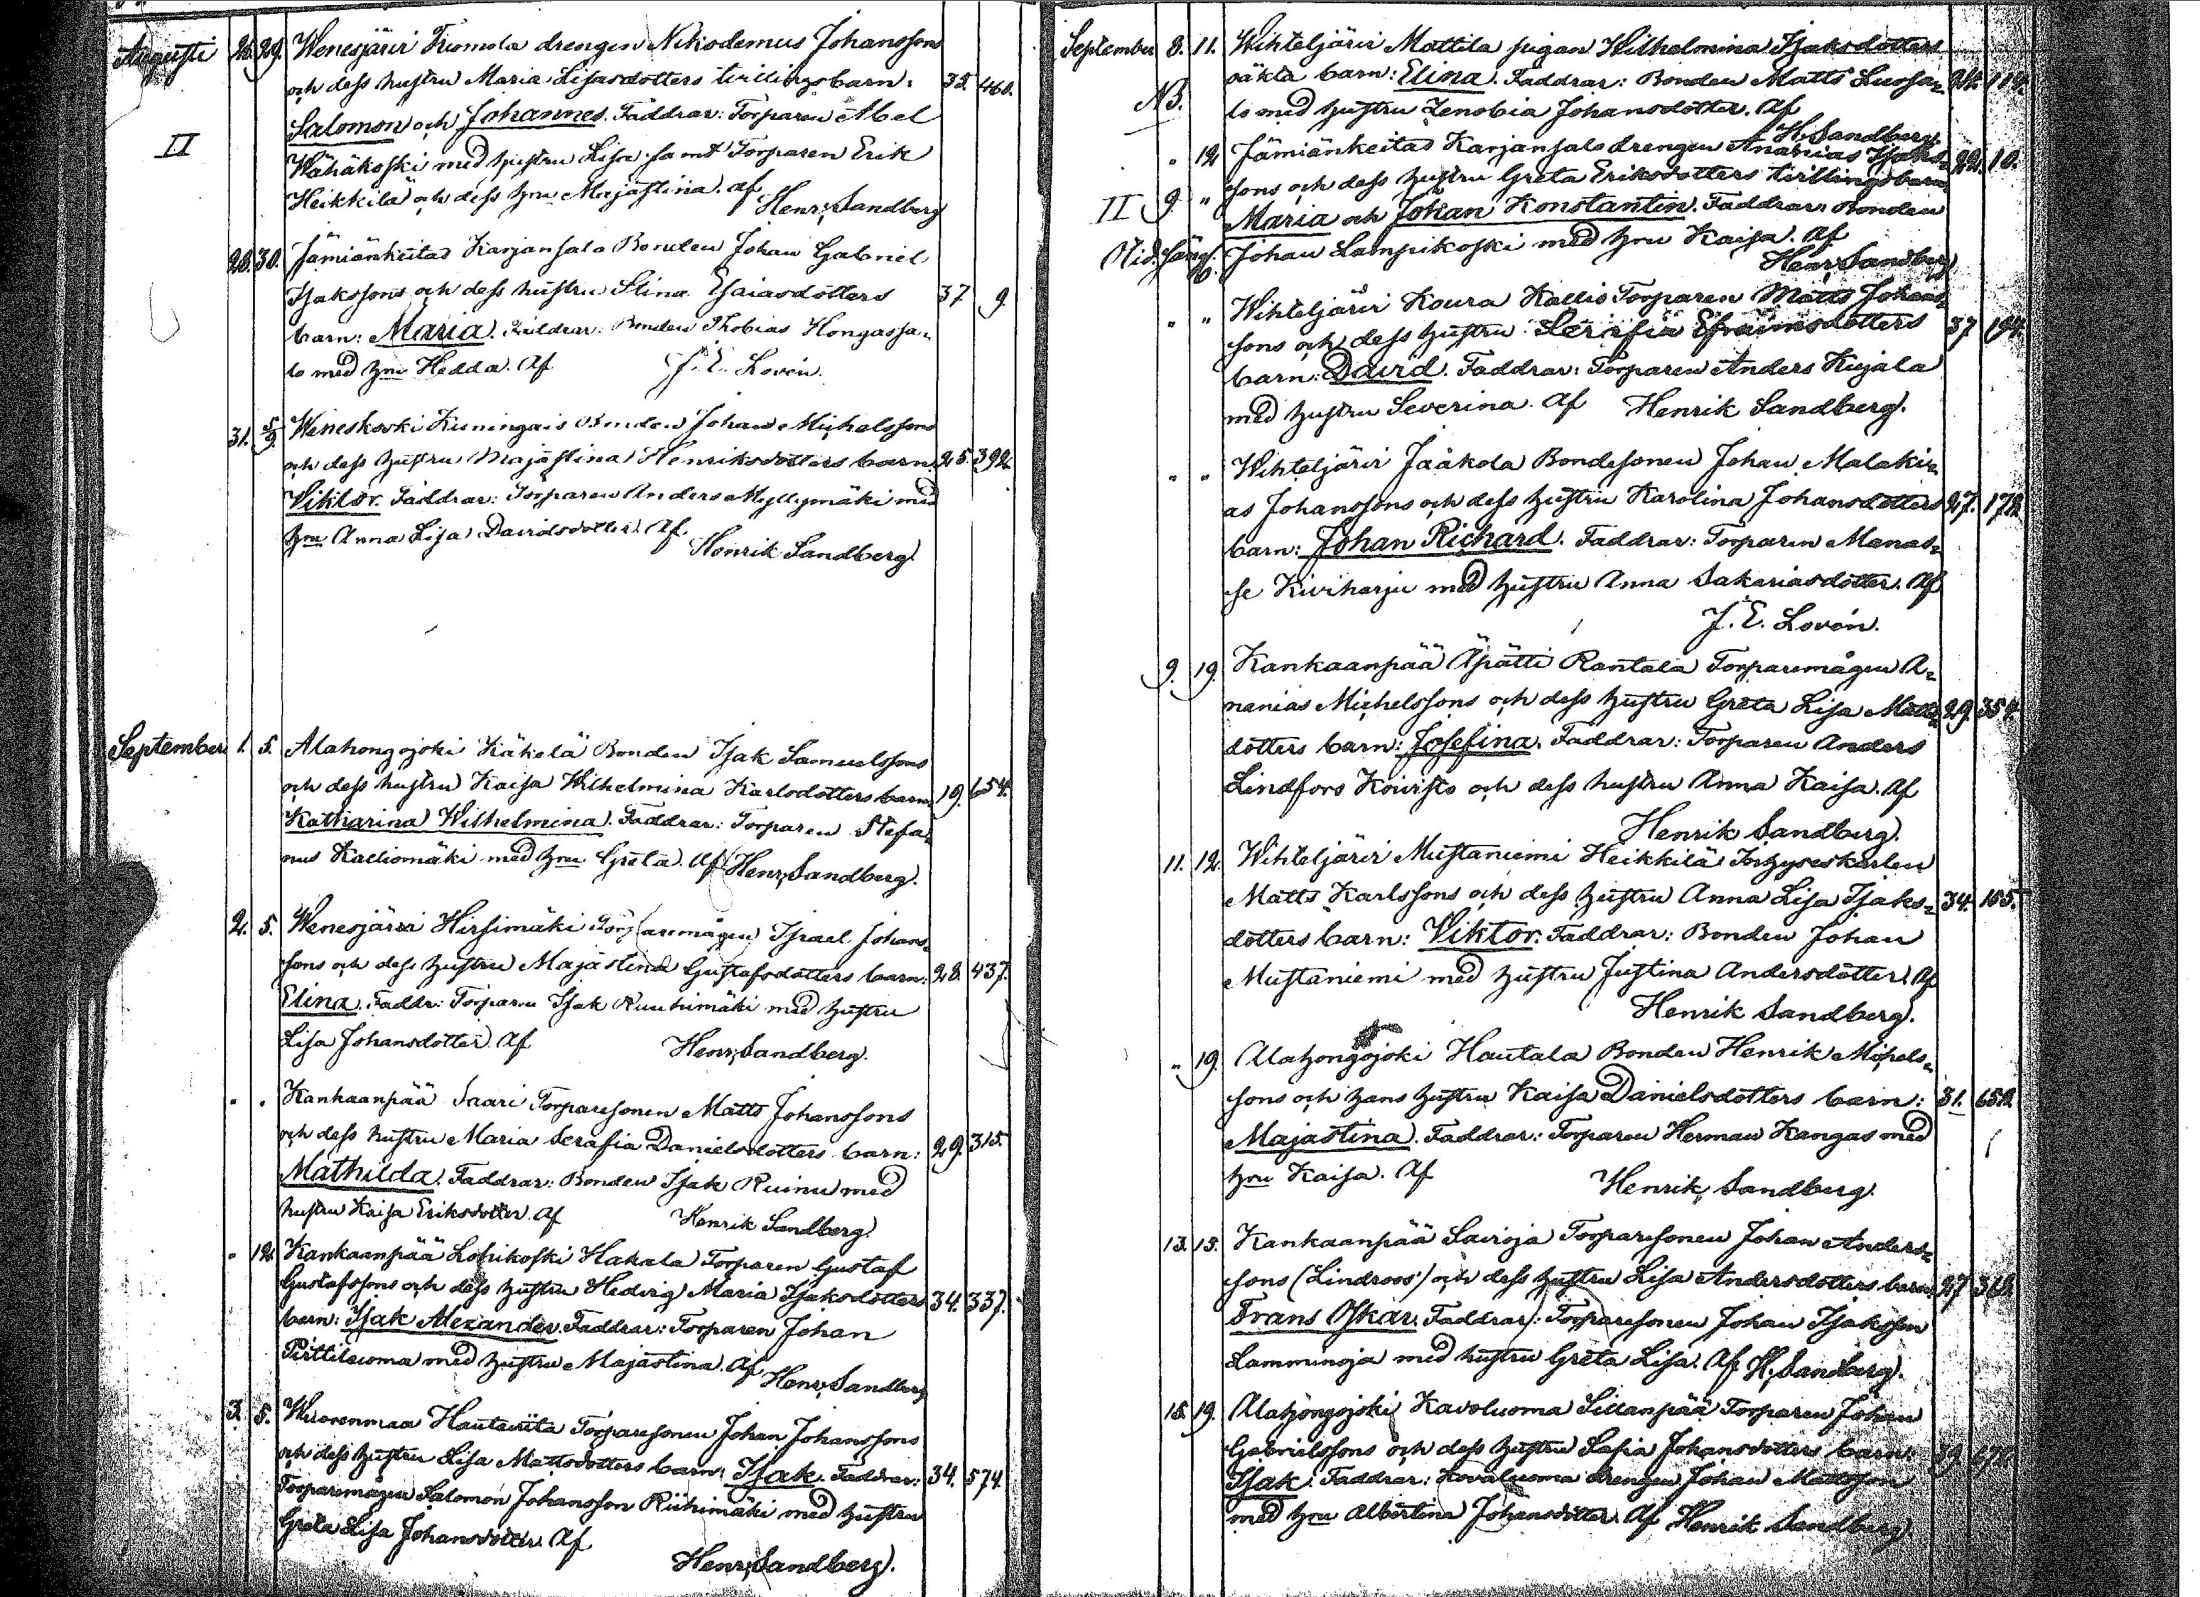 Augusti 26. 29. Wenesjärvi Tuomola drengen Nikodemus Johanssons
och dess hustru Maria Lisasdotters tvillingsbarn: 35. 460.
Salomon och Johannes. Faddrar: Torparen Abel
II
Wähäkoski med hustru Lisa samt Torparen Erik
Heikkilä och dess hru Majastina. Af
Henr. Sandberg
28. 30. Jämiänkeitas Karjansalo Bonden Johan Gabriel
Isakssons och dess hustru Stina Esaiasdotters 37 9
barn: Maria. Faddrar: Bonden Thobias Hongassa-
lo med hru Hedda. Af J. E. Lovén.
31. 5/9. Weneskoski Kuningais Bonden Johan Michelssons
och dess hustru Majastina Henriksdotters barn: 25. 392.
Viktor. Faddrar: Torparen Anders Myllymäki med
hru Anna Lisa Davidsdotter. Af
Henrik Sandberg
September 1. 5. Alahongojoki Käkelä Bonden Isak Samuelssons
och dess hustru Kaisa Wilhelmina Karlsdotters barn: 19. 654.
Katharina Wilhelmina. Faddrar: Torparen Stefa-
nus Kalliomäki med hru Greta. Af Henr. Sandberg.
2. 5. Wenesjärvi Hirsimäki Torparemågen Israel Johans-
sons och dess hustru Majastina Gustafsdotters barn: 28. 437.
Elina. Faddr: Torparen Isak Ruuhimäki med hustru
Lisa Johansdotter. Af Henr. Sandberg.
" " Kankaanpää Saari Torparesonen Matts Johanssons
och dess hustru Maria Serafia Danielsdotters barn: 29. 315.
Mathilda. Faddrar: Bonden Isak Ruinu med
hustru Kaisa Eriksdotter. Af Henrik Sandberg.
" 12. Kankaanpää Lohikoski Hakala Torparen Gustaf
Gustafssons och dess hustru Hedvig Maria Isaksdotters 34. 337.
barn: Isak Alexander. Faddrar: Torparen Johan
Pirttiluoma med hustru Majastina. Af
Henr. Sandberg
3. 5. Wuorenmaa Hautaviita Torparesonen Johan Johanssons
och dess hustru Lisa Mattsdotters barn: Isak. Faddrar: 34. 574.
Torparemågen Salomon Johansson Riihimäki med hustru
Greta Lisa Johansdotter. Af
Henr. Sandberg.
September 8. 11. Wihteljärvi Mattila pigan Wilhelmina Isaksdotters
oäkta barn: Elina. Faddrar: Bonden Matts Luosa-
NB.
lo med hustru Zenobia Johansdotter. Af
H. Sandberg.
" 12. Jämiänkeitas Karjansalo drengen Ananias Isaks- 22. 10.
sons och dess hustru Greta Eriksdotters tvillingsbarn
II 9. " Maria och Johan Konstantin. Faddrar: Bonden
Johan Lampikoski med hru Kaisa. Af
Henr. Sandberg
" " Wihteljärvi Koura Kallis Torparen Matts Johans-
sons och dess hustru Serafia Efraimsdotters 37 194.
barn: David. Faddrar: Torparen Anders Kujala
med hustru Severina. Af Henrik Sandberg.
" " Wihteljärvi Jaakola Bondesonen Johan Malaki-
as Johanssons och dess hustru Karolina Johansdotters 27. 172.
barn: Johan Richard. Faddrar: Torparen Manas-
se Kiviharju med hustru Anna Sakariasdotter. Af
J. E. Lovén.
9. 19. Kankaanpää Äpätti Rantala Torparemågen A-
nanias Michelssons och dess hustru Greta Lisa Matts- 29. 354.
dotters barn: Josefina. Faddrar: Torparen Anders
Lindfors Koivisto och dess hustru Anna Kaisa. Af
Henrik Sandberg.
11. 12. Wihteljärvi Mustaniemi Heikkilä Inhyseskarlen
Matts Karlssons och dess hustru Anna Lisa Isaks- 34. 155.
dotters barn: Viktor. Faddrar: Bonden Johan
Mustaniemi med hustru Justina Andersdotter. Af
Henrik Sandberg.
" 19. Alahongojoki Hautala Bonden Henrik
sons och hans hustru Kaisa Danielsdotters barn: 31. 652.
Majastina. Faddrar: Torparen Herman Kangas med
hru Kaisa. Af Henrik Sandberg.
13. 15. Kankaanpää Sairoja Torparesonen Johan Anders-
sons (Lindroos) och dess hustru Lisa Andersdotters barn: 27
Frans Oskar. Faddrar: Torparesonen Johan Isaksson
Lamminoja med hustru Greta Lisa. Af H. Sandberg.
15. 19. Alahongojoki Kavoluoma Sillanpää Torparen Johan
Gabrielssons och dess hustru Safia Johansdotters barn:
Isak. Faddrar: Kovaluoma drengen Johan Mattsson
med hru Albertina Johansdotter. Af Henrik Sandberg